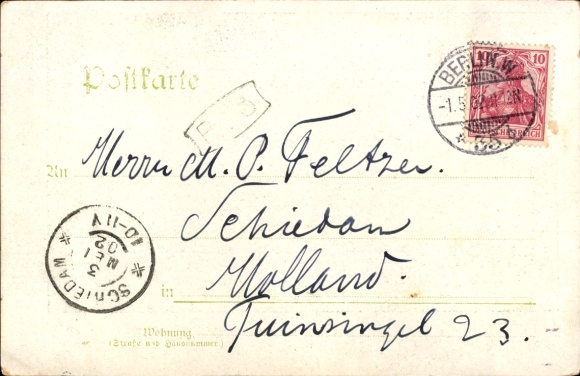 Postkarte
BERLIN. W
-1.5.02
* 35
10
An Herrn M. P. Feltzer.
Schiedam
in Holland.
Tuinsingel 23.
Wohnung
(Straße und Hausnummer.)
SCHIEDAM
3
MEI
02
10-11V